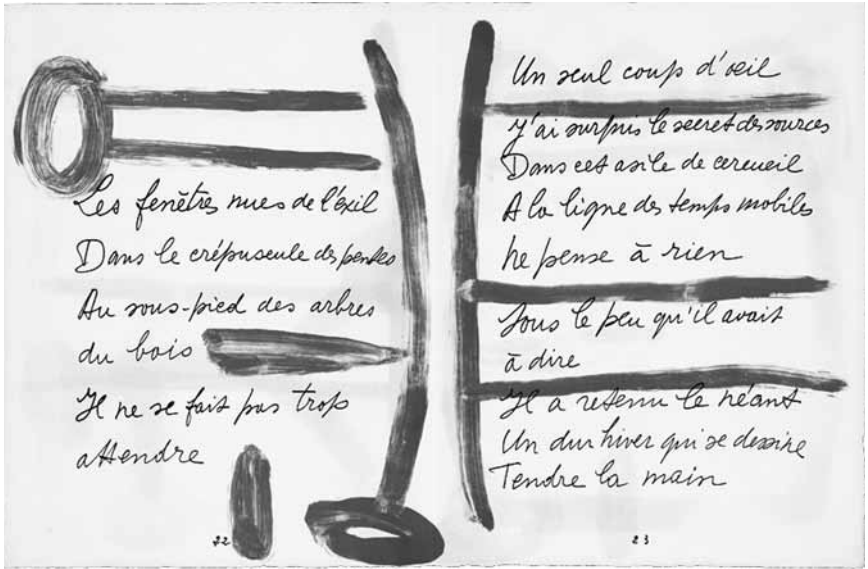 Les fenêtres nues de l'éxil
Dans le crépuscule des pentes
Au sous-pied des arbres
du bois
Il ne se fait pas trop
attendre
22
Un seul coup d'œil
J'ai surpris le secret des sources
Dans cet asile de cercueil
A la ligne des temps mobiles
Ne pense à rien
Sous le peu qu'il avait
à dire
Il a retenu le néant
Un dur hiver qui se dessine
Tendre la main
23